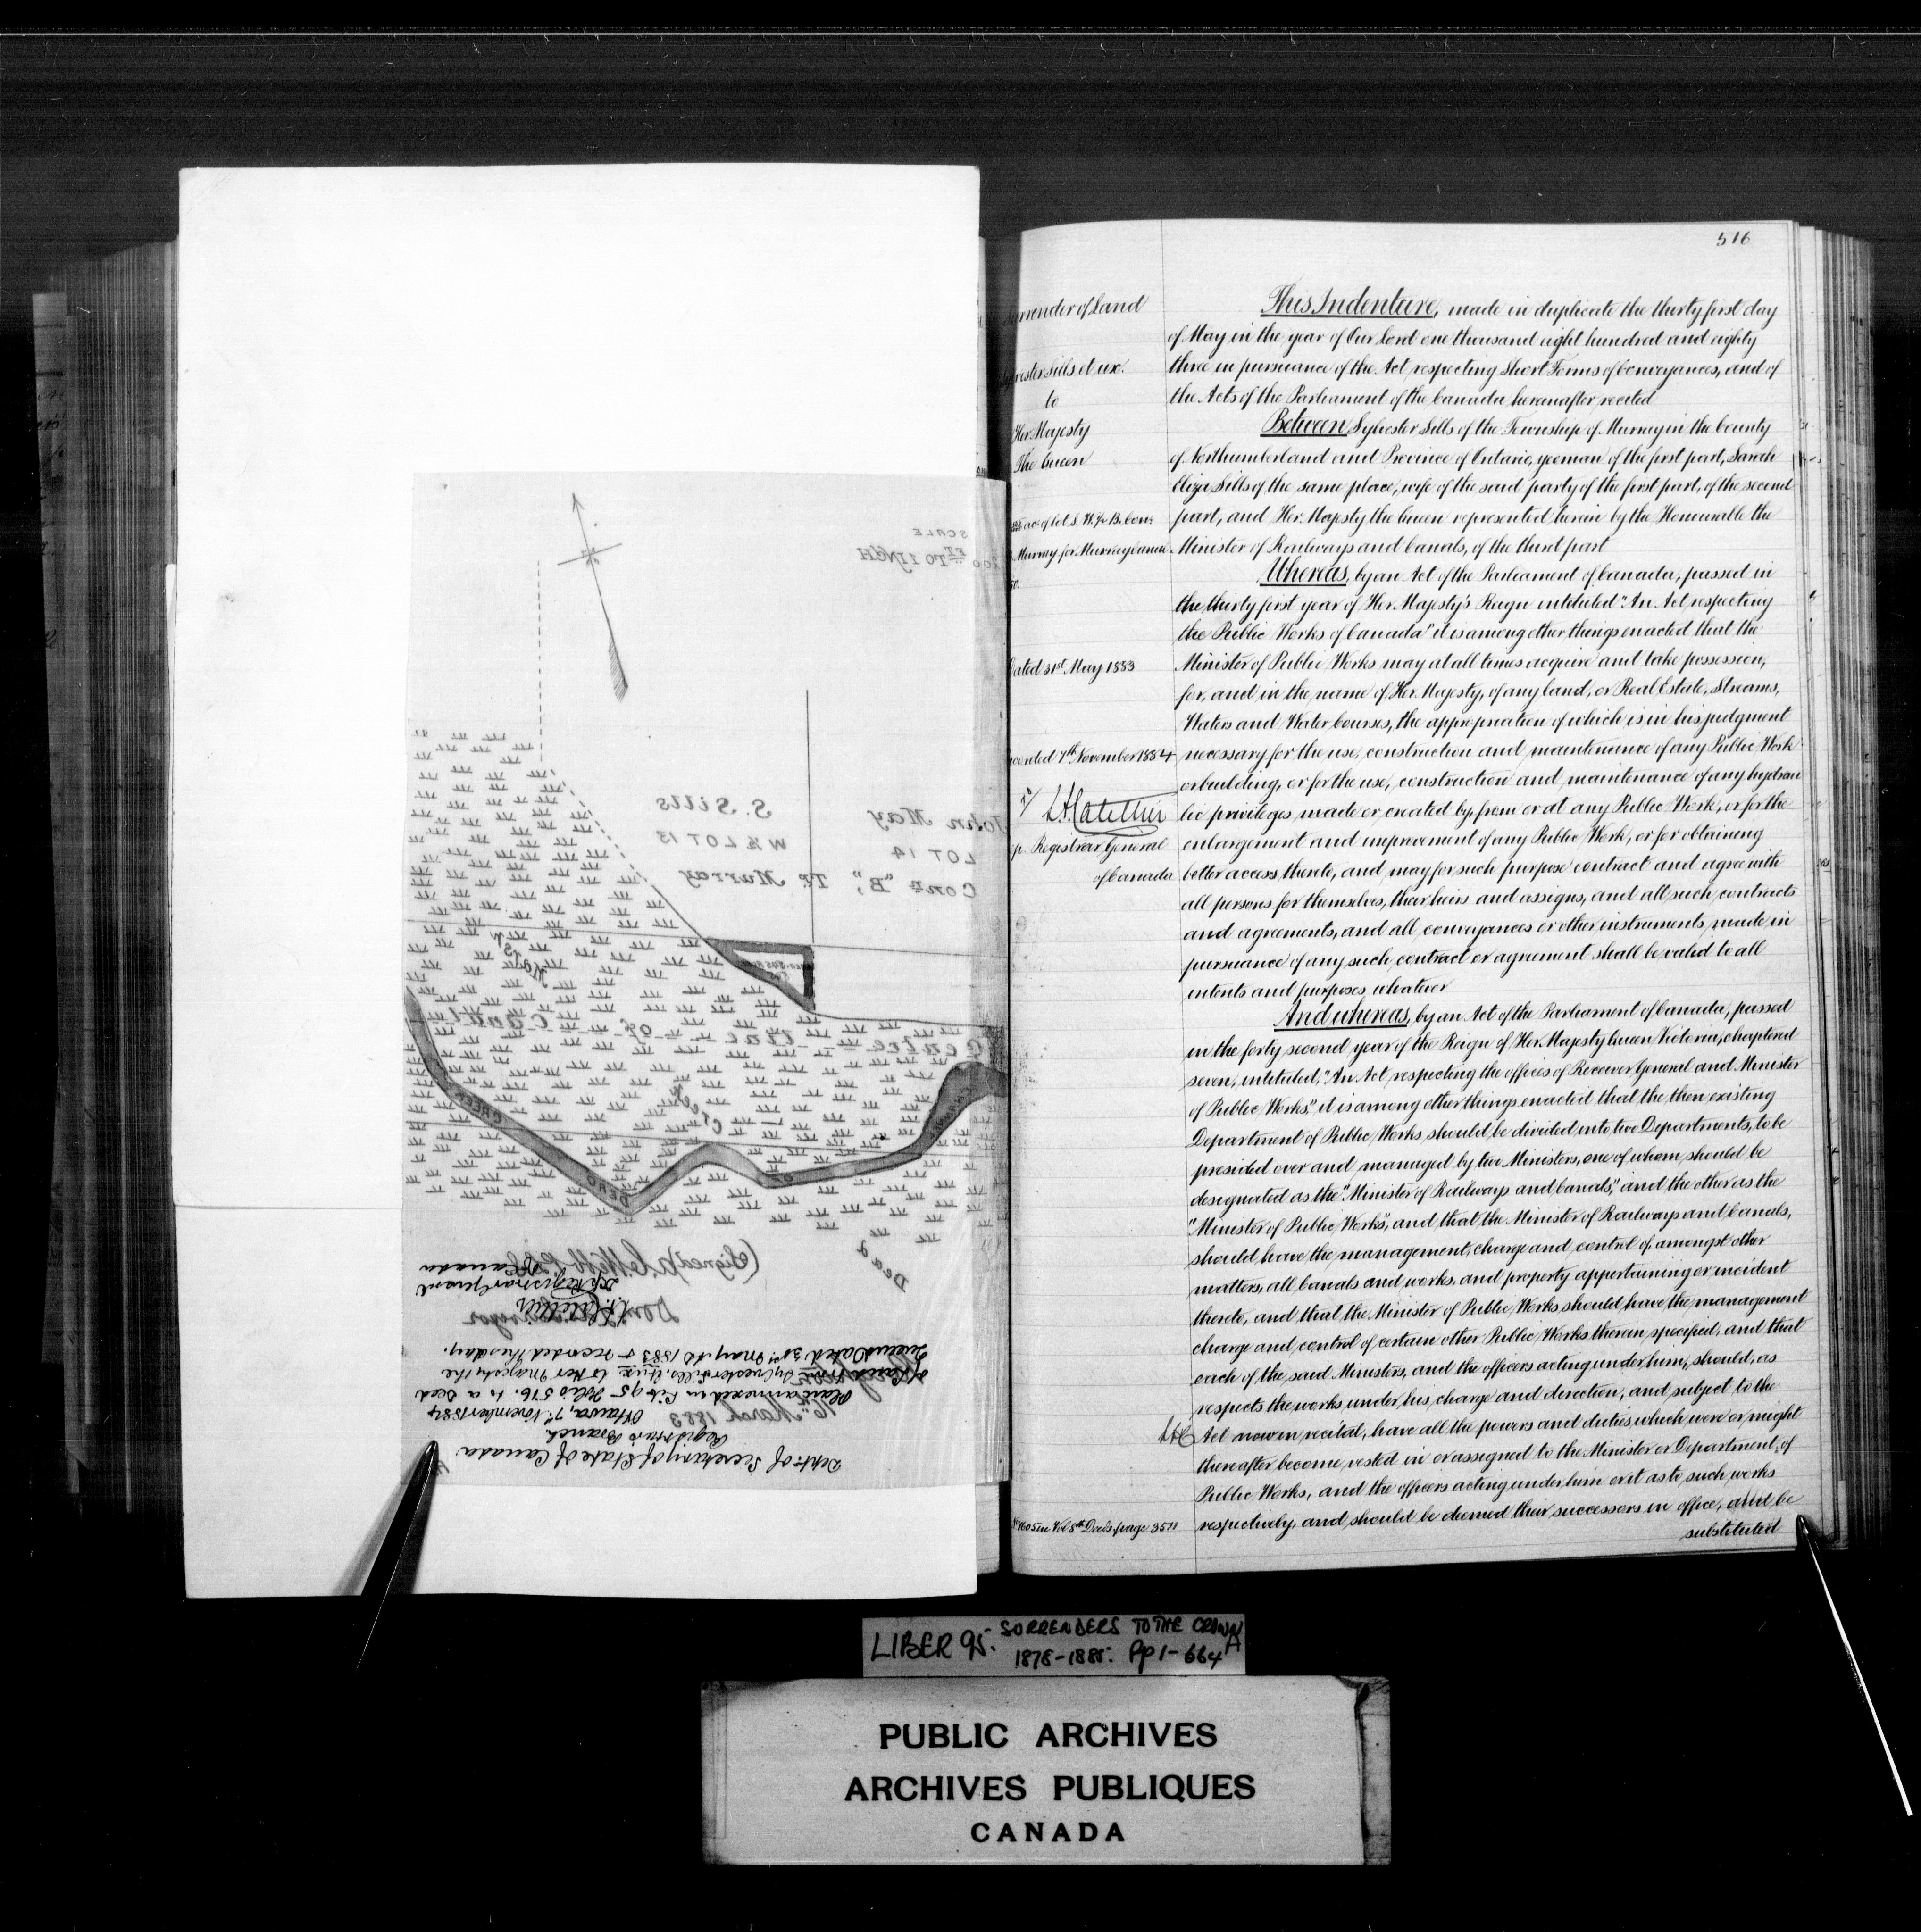 SCALE
FT TO 1 INCH
S. Sills
W ½ LOT 13
John May
LOT 14
Con. "B", Tp. Murray
Marsh
Centre line of Canal
DEAD CREEK
Dead Creek
(Signed)
Dom. Surveyor
16th March 1883
Dept. of Secretary of State of Canada.
Registrar's Branch
Ottawa, 7th November 1884
Plan annexed in Lib 95 Folio 516. to a Deed
of Land from Sylvester Sills, et ux to Her Majesty the
Queen Dated 31st May AD 1883 & recorded this day.
L.A. Catellier
Dep. Registrar General
of Canada
516
Surrender of Land
Sylvester Sills et ux.
to
Her Majesty
The Queen
Murray for Murray Canal
Dated 31st May 1883
Recorded 7th November 1884
L.A. Catellier
Dep. Registrar General
of Canada
This Indenture, made in duplicate the thirty first day
of May in the year of Our Lord one thousand eight hundred and eighty
three in pursuance of the Act respecting Short Forms of Conveyances, and of
the Acts of the Parliament of the Canada hereinafter recited
Between Sylvester Sills of the Township of Murray in the County
of Northumberland and Province of Ontario, yeoman of the first part, Sarah
Eliza Sills of the same place, wife of the said party of the first part, of the second
part, and Her Majesty the Queen represented herein by the Honourable the
Minister of Railways and Canals, of the third part
Whereas, by an Act of the Parliament of Canada, passed in
the thirty first year of Her Majesty's Reign intituled "An Act respecting
the Public Works of Canada" it is among other things enacted that the
Minister of Public Works may at all times acquire and take possession,
for, and in the name of Her Majesty, of any land, or Real Estate, Streams,
Waters and Water Courses, the appropriation of which is in his judgment
necessary for the use, construction and maintenance of any Public Work
or building, or for the use, construction and maintenance of any hydrau
lic privileges made or created by, from or at any Public Work, or for the
enlargement and improvement of any Public Work, or for obtaining
better access thereto, and may for such purpose contract and agree with
all persons for themselves, their heirs and assigns, and all such contracts
and agreements, and all conveyances or other instruments, made in
pursuance of any such contract or agreement shall be valid to all
intents and purposes whatever
And whereas, by an Act of the Parliament of Canada, passed
in the forty second year of the Reign of Her Majesty Queen Victoria, chaptered
seven, intituled, "An Act respecting the offices of Receiver General and Minister
of Public Works," it is among other things enacted that the then existing
Department of Public Works should be divided into two Departments, to be
presided over and managed by two Ministers, one of whom should be
designated as the "Minister of Railways and Canals," and the other as the
"Minister of Public Works", and that the Minister of Railways and Canals,
should have the management, charge and control of, amongst other
matters, all Canals and works, and property appertaining or incident
thereto, and that the Minister of Public Works should have the management
charge and control of certain other Public Works therein specified, and that
each of the said Ministers, and the officers acting under him, should, as
respects the works under his charge and direction, and subject to the
Act now in recital, have all the powers and duties which were or might
thereafter become, vested in or assigned to the Minister or Department, of
Public Works, and the officers acting under him or it as to such works
respectively, and should be deemed their successors in office, and be
substituted
LIBER 95. SURRENDERS TO THE CROWN
1878-1885. Pp 1-664A
PUBLIC ARCHIVES
ARCHIVES PUBLIQUES
CANADA